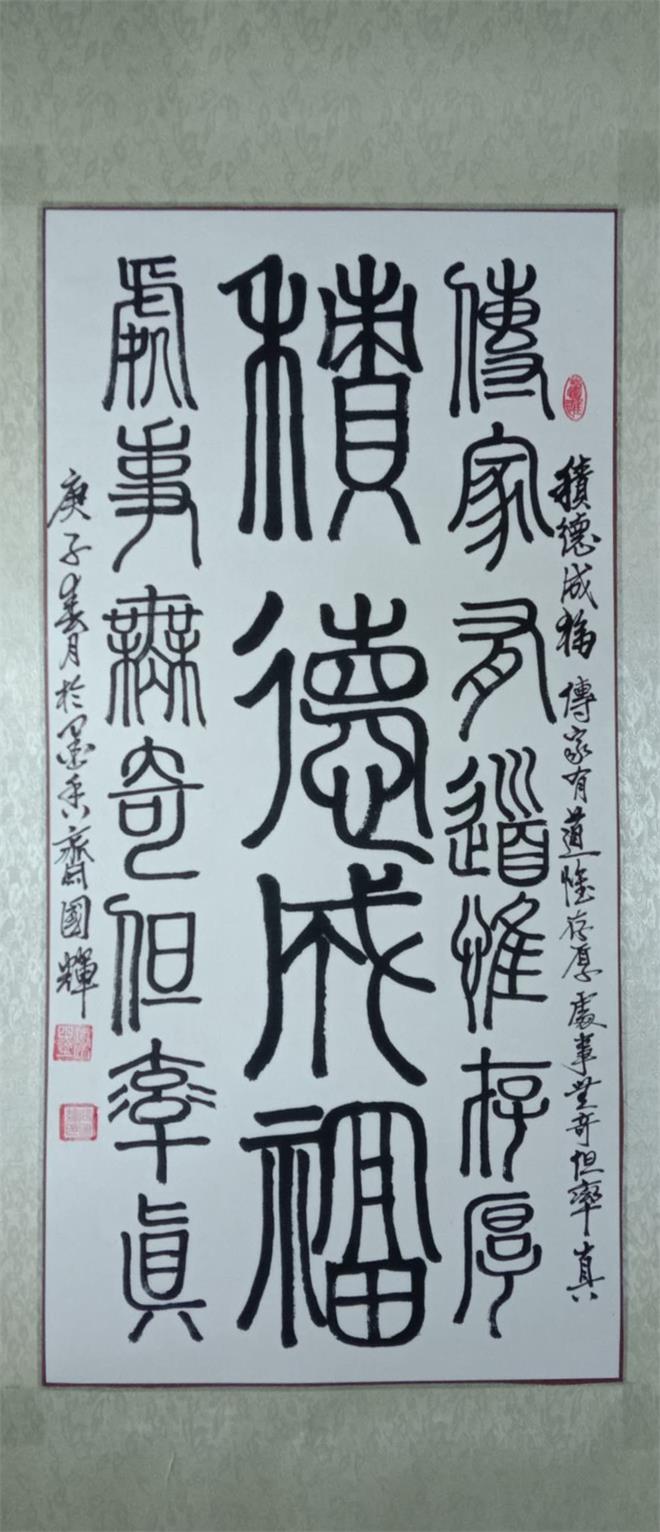 積德成福 傳家有道惟存厚 處事無奇但率真
傳家有道惟存厚
積德成福
處事無奇但率眞
庚子春月於墨香齋國輝